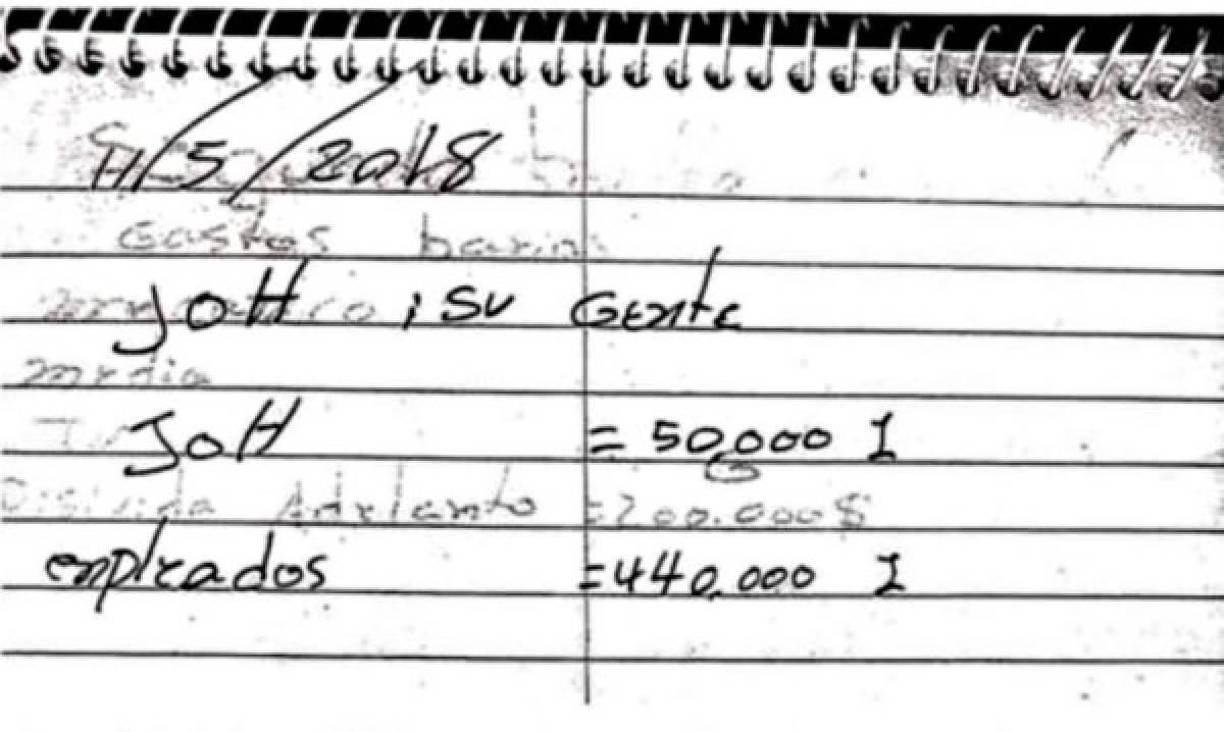 11/5/2018
Gastos
JOH i SU GENTE
media
JOH = 50,000 L
Adelanto =200.000$
empleados =440,000 L